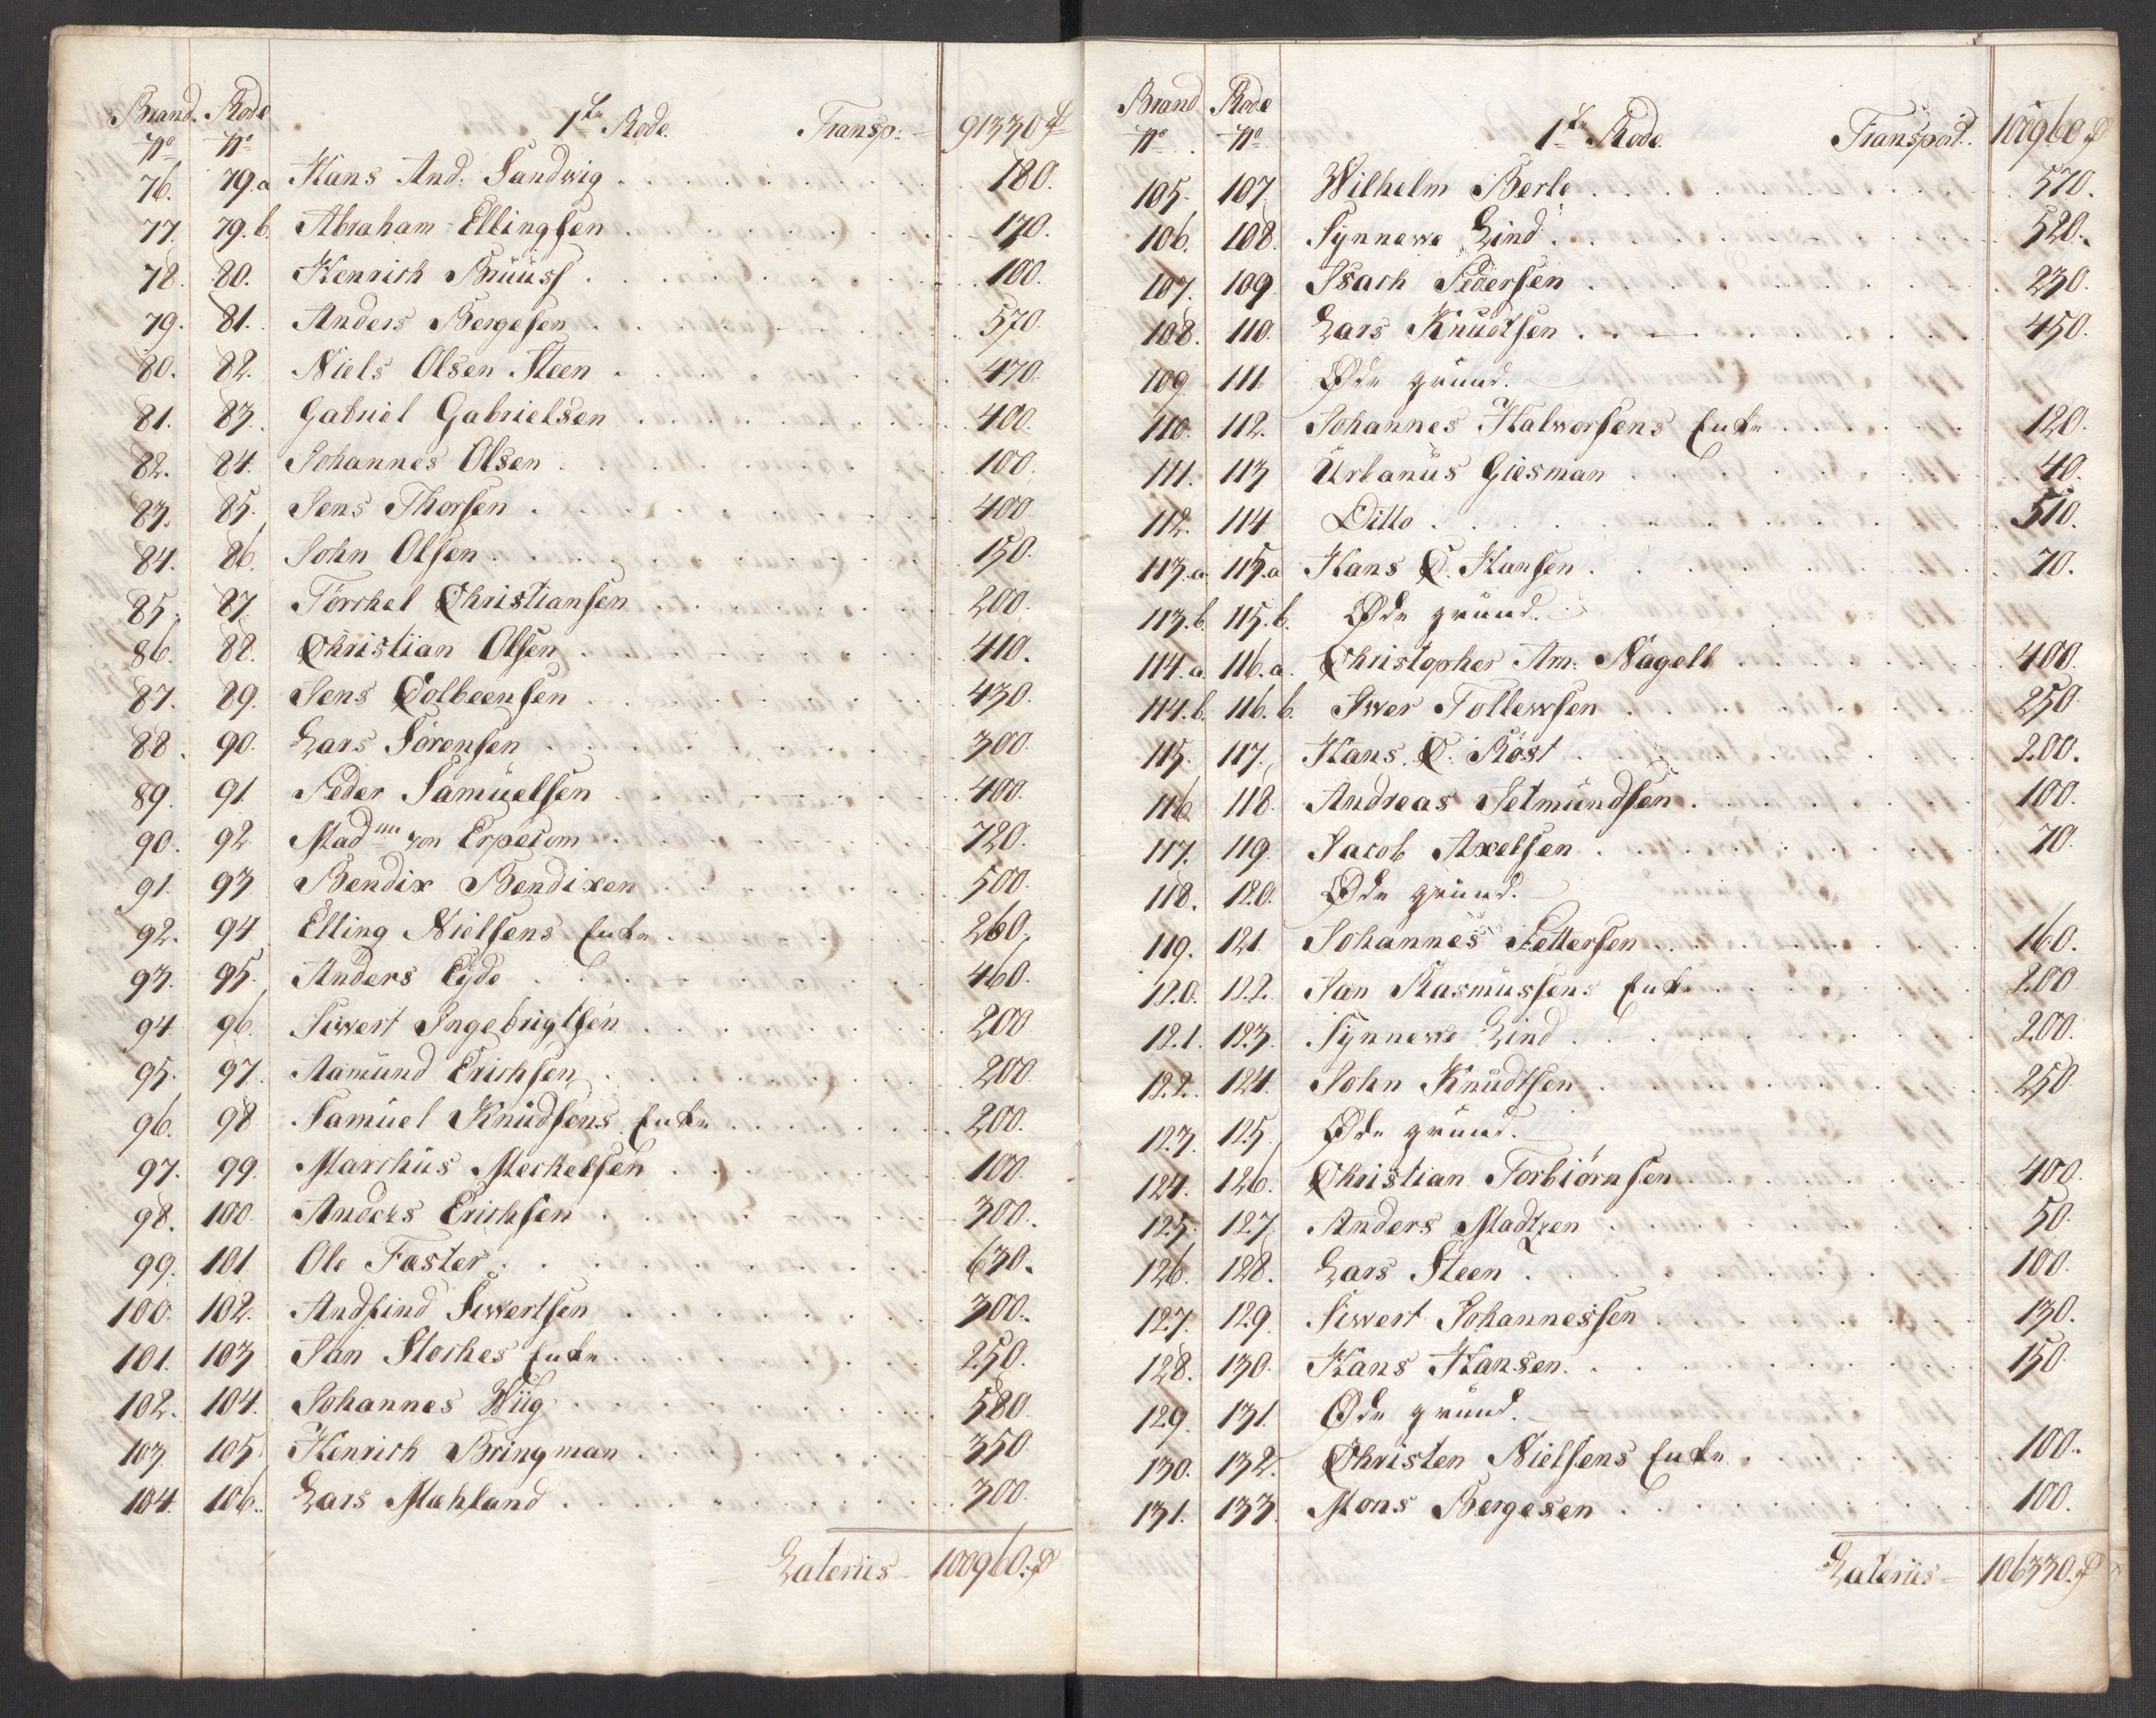 Brand. Rode
No No 1ste Rode. Transp: 91330 rd
76. 79.a Hans And: Sandwig 180.
77. 79.b. Abraham Ellingsen 170.
78. 80. Henrich Bruuss 100.
79. 81. Anders Bergesen 570.
80. 82. Niels Olsen Steen 470.
81. 83. Gabriel Gabrielsen 400.
82. 84. Johannes Olsen 100.
83. 85. Jens Thorsen 400.
84. 86. John Olsen 150.
85. 87. Torchel Christiansen 200.
86. 88. Christian Olsen 410.
87. 89. Jens Colbeensen 430.
88. 90. Lars Sörensen 300.
89. 91. Peder Samuelsen 400.
90. 92. Madme von Erpecom 720.
91. 93 Bendix Bendixen 500.
92. 94. Elling Nielsens Enke 260.
93. 95. Anders Eyde 460.
94. 96. Siwert Ingebrigtsen 200
95. 97. Aamund Erichsen 200.
96. 98 Samuel Knudsens Enke 200.
97. 99. Marchus Merkelsen 100.
98. 100. Anders Erichsen 300.
99. 101 Ole Faster 630.
100. 102. Andfind Siwertsen 300.
101. 103 Jan Storkes Enke 250.
102. 104. Johannes Wiig 580.
103 105. Henrich Bringman 350
104. 106. Lars Mæhland 300.
Laterus 100960. rd
Brand Rode
No No 1ste Rode. Transport. 100960 rd
105. 107. Wilhelm Berle 570.
106. 108. Synnewe Lind 520.
107. 109. Isach Pedersen 230.
108. 110. Lars Knudtsen 450.
109 111. Øde grund.
110. 112. Johannes Halworsens Enke 120.
111. 113 Urbanus Giesman 40.
112. 114 Ditto 510.
113.a. 115.a Hans C. Hansen 70.
113.b. 115.b. Øde grund.
114.a. 116.a. Christopher Am: Nagell 400.
114.b. 116.b. Iwer Tollewsen 250.
115. 117. Hans C. Rost 200.
116. 118. Andreas Setmundsen 100.
117. 119. Jacob Axelsen 70.
118. 120. Øde grund.
119. 121. Johannes Pettersen 160.
120. 122. Jan Rasmussens Enke 200
121. 123. Synnewe Lind 200.
122. 124. John Knudtsen 250
123. 125. Øde grund.
124. 126. Christian Torbiörnsen 400.
125. 127. Anders Madtzen 50.
126. 128. Lars Steen 100.
127. 129. Siwert Johannessen 130.
128. 130. Hans Hansen 150.
129 131. Øde grund.
130. 132. Christen Nielsens Enke 100.
131. 133. Mons Bergesen 100.
Laterus 106330. rd